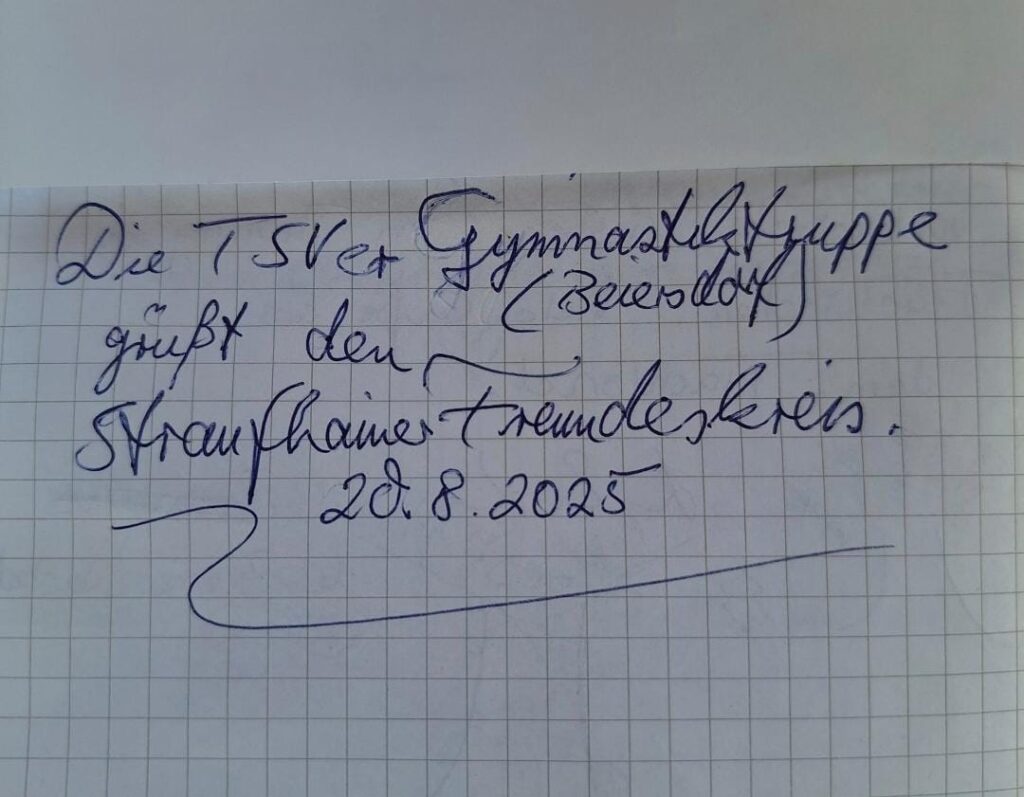 Die TSVer Gymnastikgruppe
(Beiersdorf)
grüßt den
Straufhainer Freundeskreis.
20.8.2025